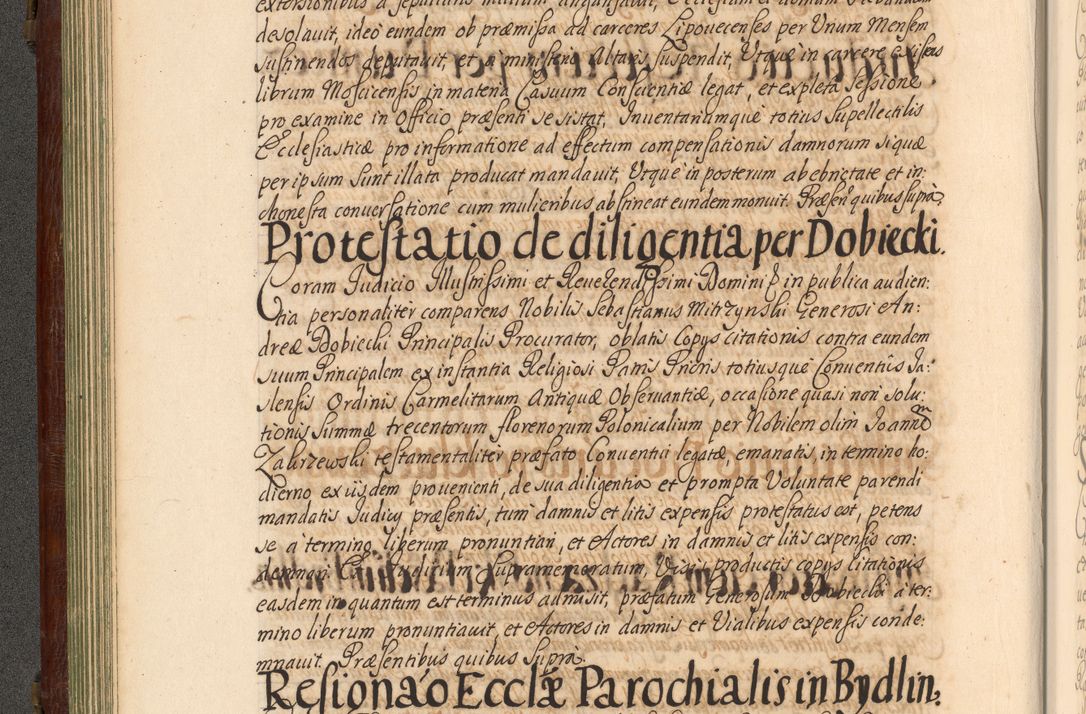 desolauit, ideo eundem ob præmissa ad carceres Lipouecenses per Unum Mensem
sustinendos deputauit, et a ministerio Altaris suspendit, Utque in carcere existens
librum Moscicensis in materia Casuum Conscientiæ legat, et expleta sessione
pro examine in Officio præsenti se sistat, Inuentariumque totius supellectilis
Ecclesiasticæ pro informatione ad effectum compensationis damnorum siquæ
per ipsum sunt illata producat mandauit, Utque in posterum ab ebrietate et in:
honesta conuersatione cum mulieribus abstineat eundem monuit. Præsen quibus supra.
Protestatio de diligentia per Dobiecki.
Coram Judicio Illustrissimi et Reuerendissimi Domini in publica audien:
tia personaliter comparens Nobilis Sebastianus Mitrzynski Generosi An:
dreæ Dobiecki Principalis Procurator, oblatis Copys citationis contra eundem
suum Principalem ex instantia Religiosi Patris Prioris totiusque Conuentûs Ja:
slensis Ordinis Carmelitarum Antiquæ Obseruantiæ, occasione quasi non solu:
tionis summæ trecentorum florenorum Polonicalium per Nobilem olim Joannem
Zakrzewski testamentaliter præfato Conuentui legatæ, emanatis, in termino ho:
dierno ex iisdem prouenienti, de sua diligentia et prompta Voluntate parendi
mandatis Judicy præsentis, tum damnis et litis expensis protestatus est, petens
se a termino liberum pronuntiari, et Actores in damnis et litis expensis con:
demnari. Judicium supramemoratum, Visis productis copys citationis
easdem in quantum est terminus admisit, præfatum Generosum Dobiecki a ter:
mino liberum pronuntiauit, et Actores in damnis et Vialibus expensis conde:
mnauit. Præsentibus quibus supra.
Resionão Ecclæ Parochialis in Bydlin.